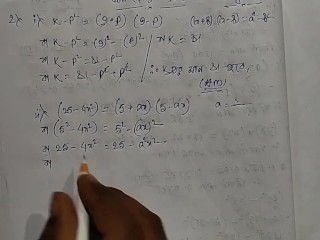 2) i) K - p² = (9+p) (9-p)
(a+b)(a-b) = a²-b²
বা K - p² = (9)² - (p)²
বা K - p² = 81 - p²
বা K = 81 - p² + p²
বা K = 81
∴ K এর মান 81 হবে,
ii) (25-4x²) = (5+ax) (5-ax)
a =
বা (5² - 4x²) = 5² - (ax)²
বা 25 - 4x² = 25 - a²x²
বা